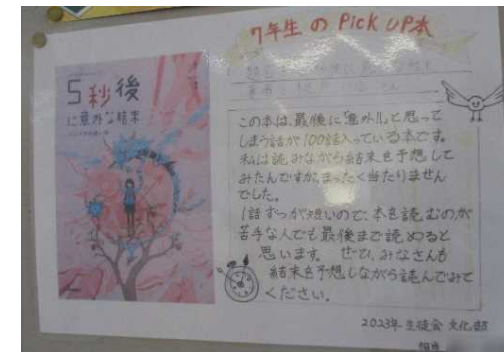 7年生 の Pick UP本
5秒後
に意外な結末
この本は、最後に「意外!!」と思って
しまう話が100話入っている本です。
私は読みながら結末を予想して
みたんですが、まったく当たりません
でした。
1話ずつが短いので、本を読むのが
苦手な人でも最後まで読めると
思います。ぜひ、みなさんも
結末を予想しながら読んでみて
ください。
2023年 生徒会 文化部
担当